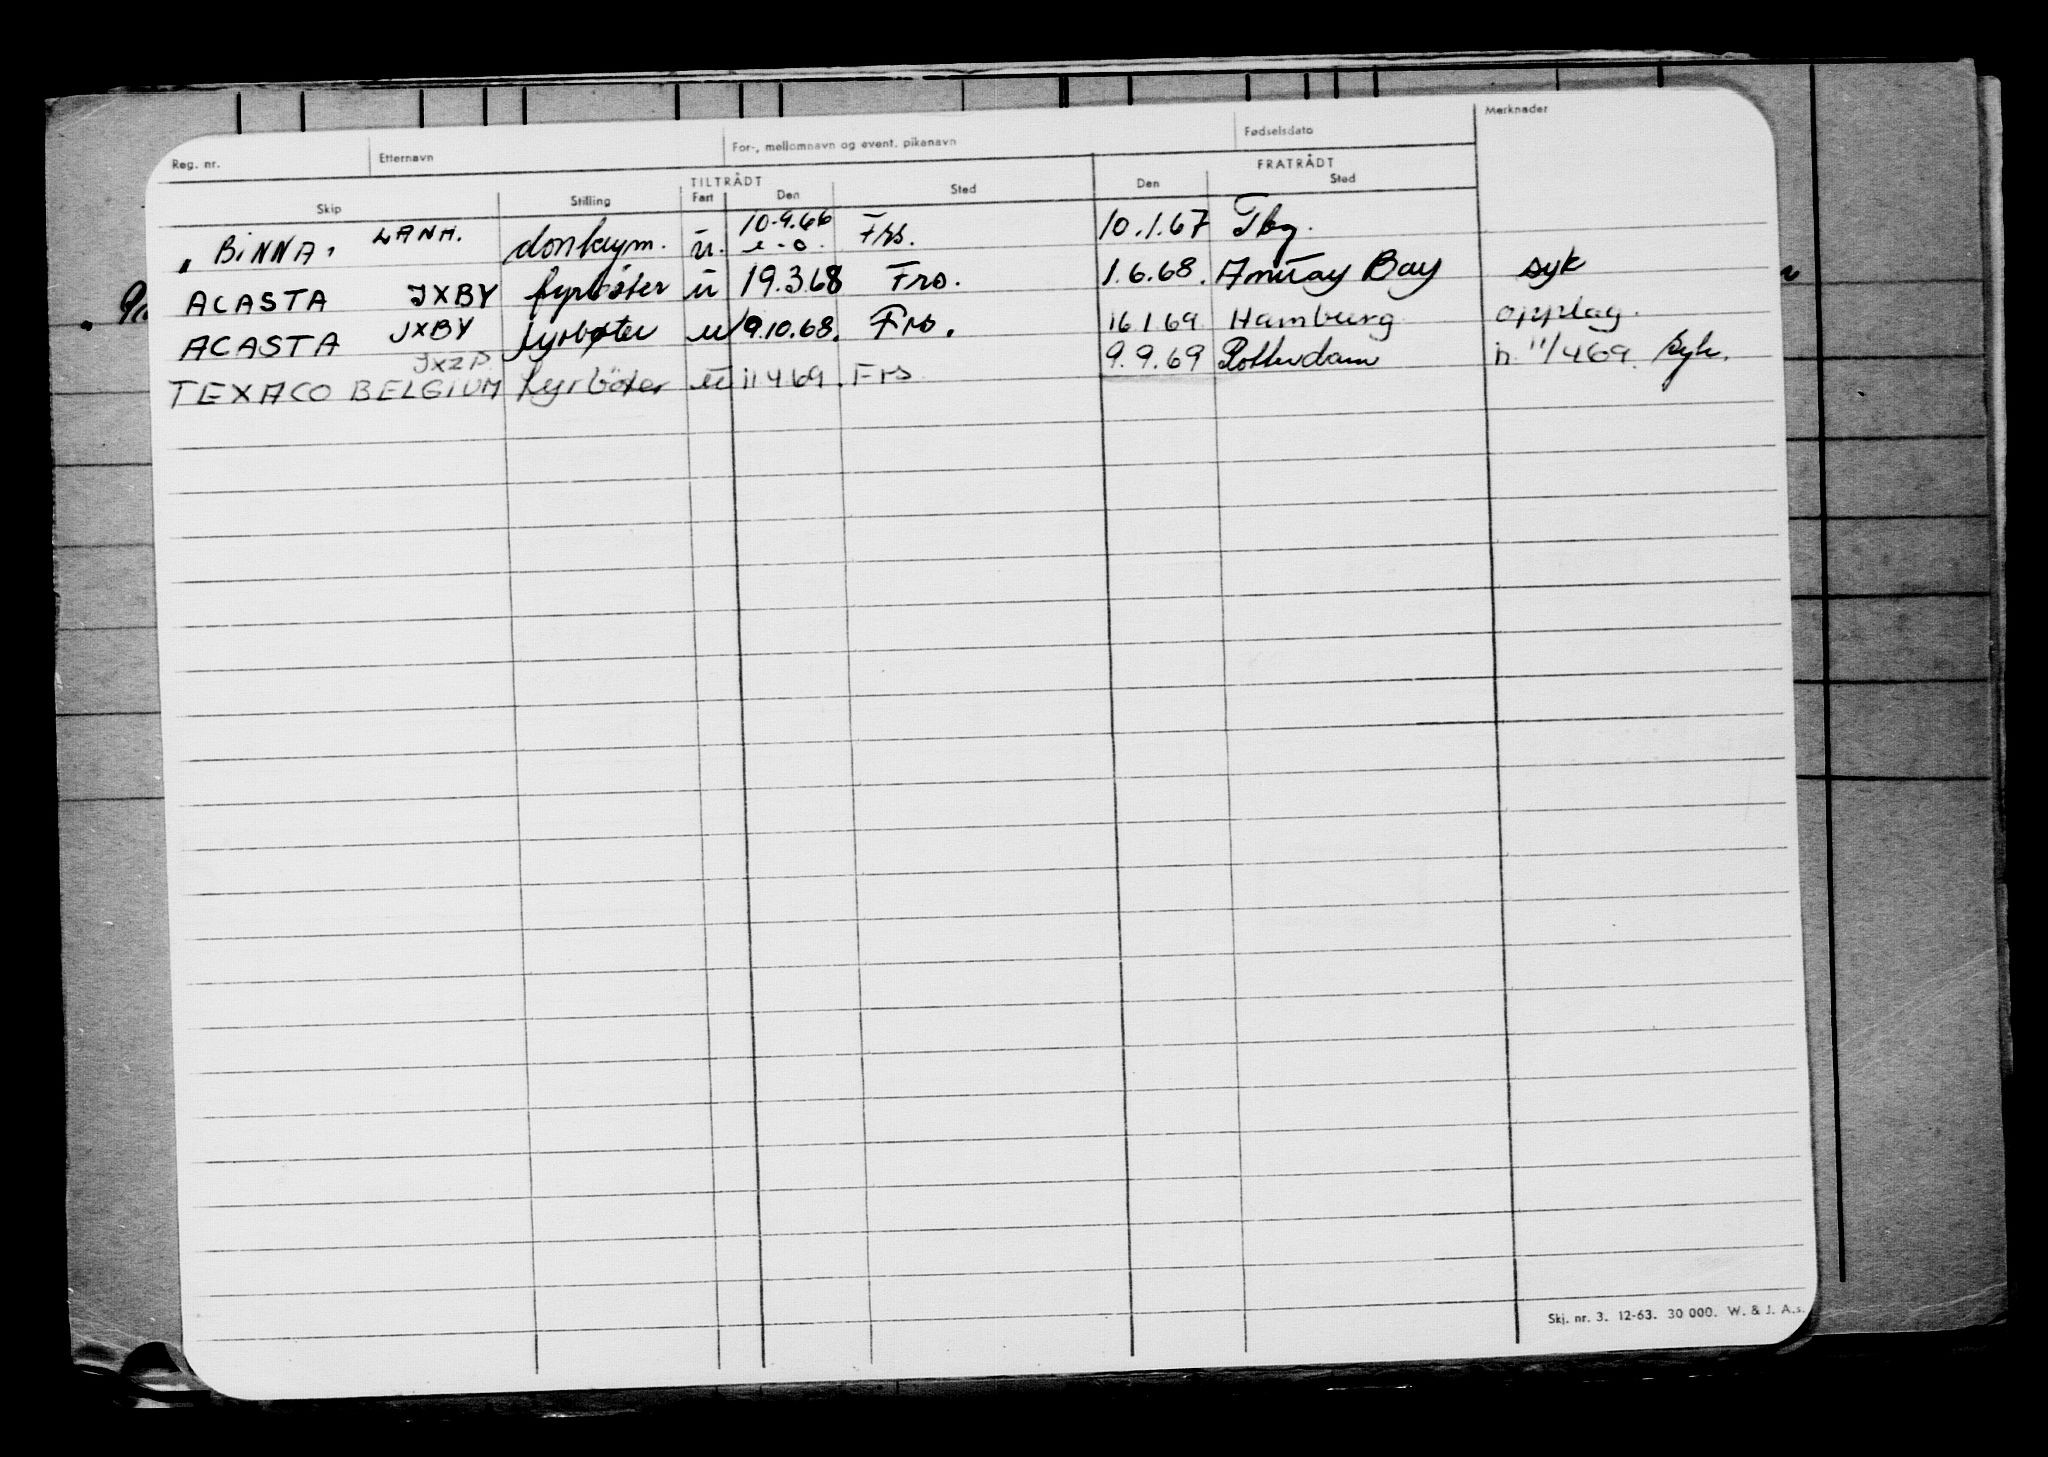 Reg. nr. Etternavn For-, mellomnavn og event. pikenavn Fødselsdato Merknader
TILTRÅDT FRATRÅDT
Skip Stilling Fart Den Sted Den Sted
"BINNA" LANH. donkeym. u. 10.9.66 Frs. 10.1.67 Tbg.
e-o.
ACASTA JXBY fyrbøter u 19.3.68 Frs. 1.6.68. Amuay Bay syk
ACASTA JXBY fyrbøter u 9.10.68. Frs. 16.1.69 Hamburg opplag.
JXZP.
TEXACO BELGIUM fyrbøter u 11.4.69. Frs 9.9.69 Rotterdam n. 11/4 69. Syk.
Skj. nr. 3. 12-63. 30 000. W. & J. A.s.